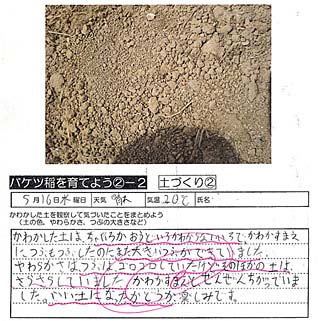 バケツ稲を育てよう②-2 土づくり②
5月16日水曜日 天気 晴れ 気温20℃ 氏名
かわかした土を観察して気づいたことをまとめよう
（土の色、やわらかさ、つぶの大きさなど）
かわかした土は、ちゃいろか というか いろで、かわかすまえ
につぶもつぶしたのにまた大きいつぶができていました。
やわらかさはつぶはコロコロしていたけど、そのほかの土は
さらさらしていました。かわかすまえとぜんぜんちがっていま
した。いい土になったかどうか楽しみです。